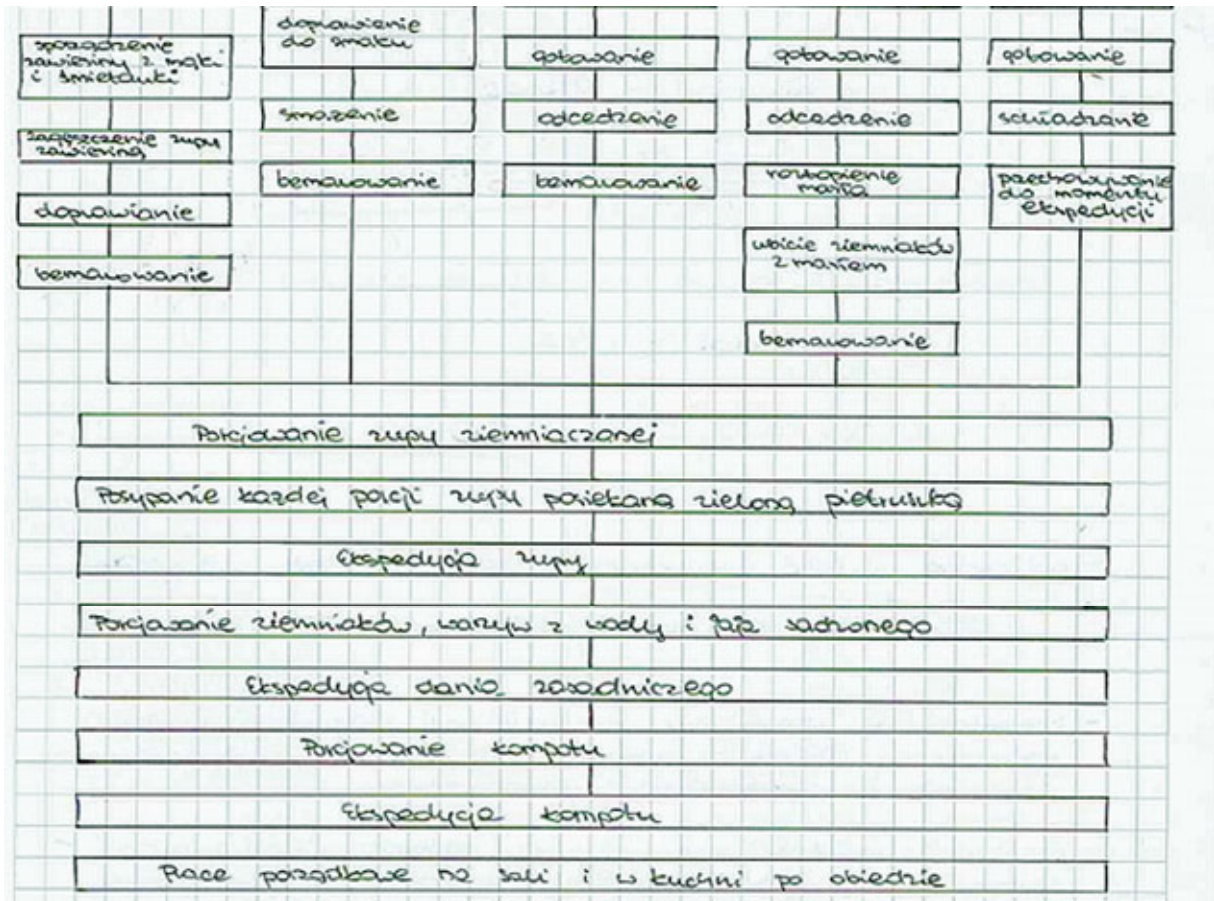 sporządzenie
zawiesiny z mąki
i śmietanki
zagęszczenie zupy
zawiesiną
doprawianie
bemarowanie
doprawienie
do smaku
smażenie
bemarowanie
gotowanie
odcedzenie
bemarowanie
gotowanie
odcedzenie
roztopienie
masła
ubicie ziemniaków
z masłem
bemarowanie
gotowanie
schładzanie
przechowywanie
do momentu
ekspedycji
Porcjowanie zupy ziemniaczanej
Posypanie każdej porcji zupy posiekaną zieloną pietruszką
Ekspedycja zupy
Porcjowanie ziemniaków, warzyw z wody i jaja sadzonego
Ekspedycja dania zasadniczego
Porcjowanie kompotu
Ekspedycja kompotu
Prace porządkowe na sali i w kuchni po obiedzie